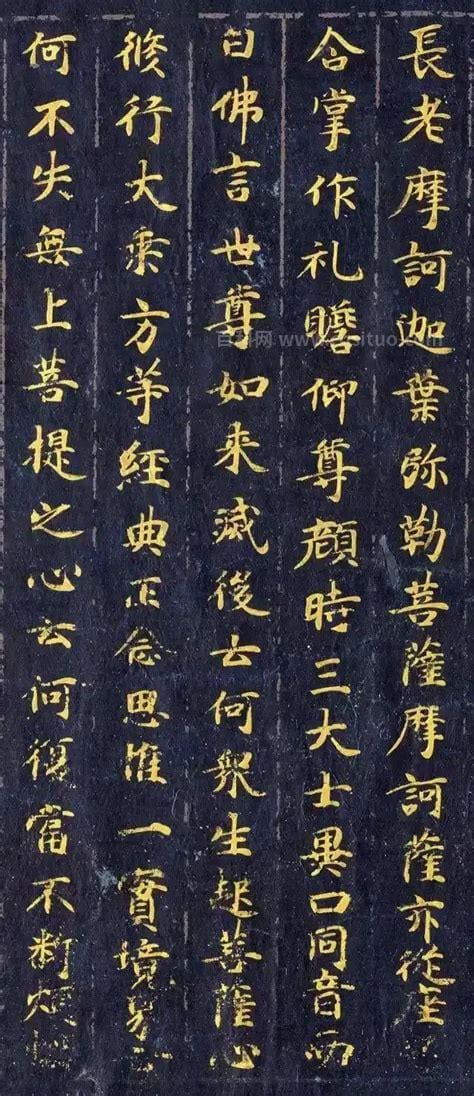 長老摩訶迦葉弥勒菩薩摩訶薩亦從座
合掌作礼瞻仰尊顔時三大士異口同音而
白佛言世尊如来滅後云何衆生起菩薩心
修行大乘方等經典正念思惟一實境界
何不失無上菩提之心云何復當不断煩